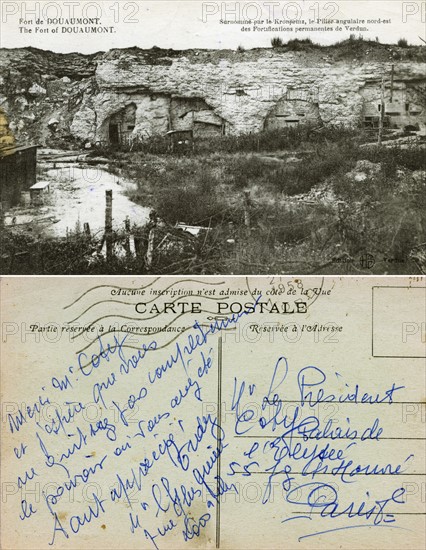 Fort de DOUAUMONT.
The Fort of DOUAUMONT.
Surnommé par le Kronprinz, le Pilier angulaire nord-est
des Fortifications permanentes de Verdun.
Aucune inscription n'est admise du côté de la Vue
CARTE POSTALE
Partie réservée à la Correspondance
Réservée à l'Adresse
1958
Merci Mr Coty
et j'espère que vous
ne quittez pas complètement
le pouvoir où vous avez été
tant apprécié
Mr Le Président
Coty Palais de
l'Elysée
55 fg St Honoré
Paris